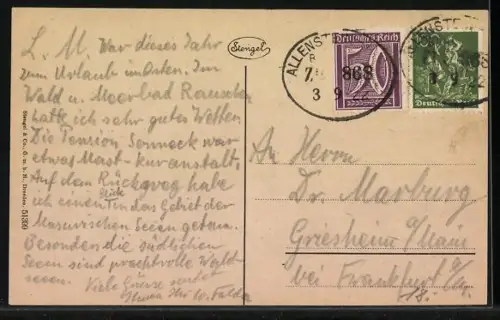 L. M. War dieses Jahr
zum Urlaub im Osten. Im
Wald u. Moorbad Rauschen
hatte ich sehr gutes Wetter.
Die Pension Sonneck war
etwas Mast-kuranstalt,
Auf dem Rückweg habe
ich einen Tag das Gebiet der
Masurischen Seen getan.
Besonders die südlichen
Seen sind prachtvolle Wald-
seen. Viele Grüsse sendet
Ihr W.
Stengel
Stengel & Co., G. m. b. H., Dresden 51399
Deutsches Reich
50
ALLENSTEIN
868
3 9
Deutsches
An Herrn
Dr. Marburg
Griesheim a/Main
bei Frankfurt a/M
18.-